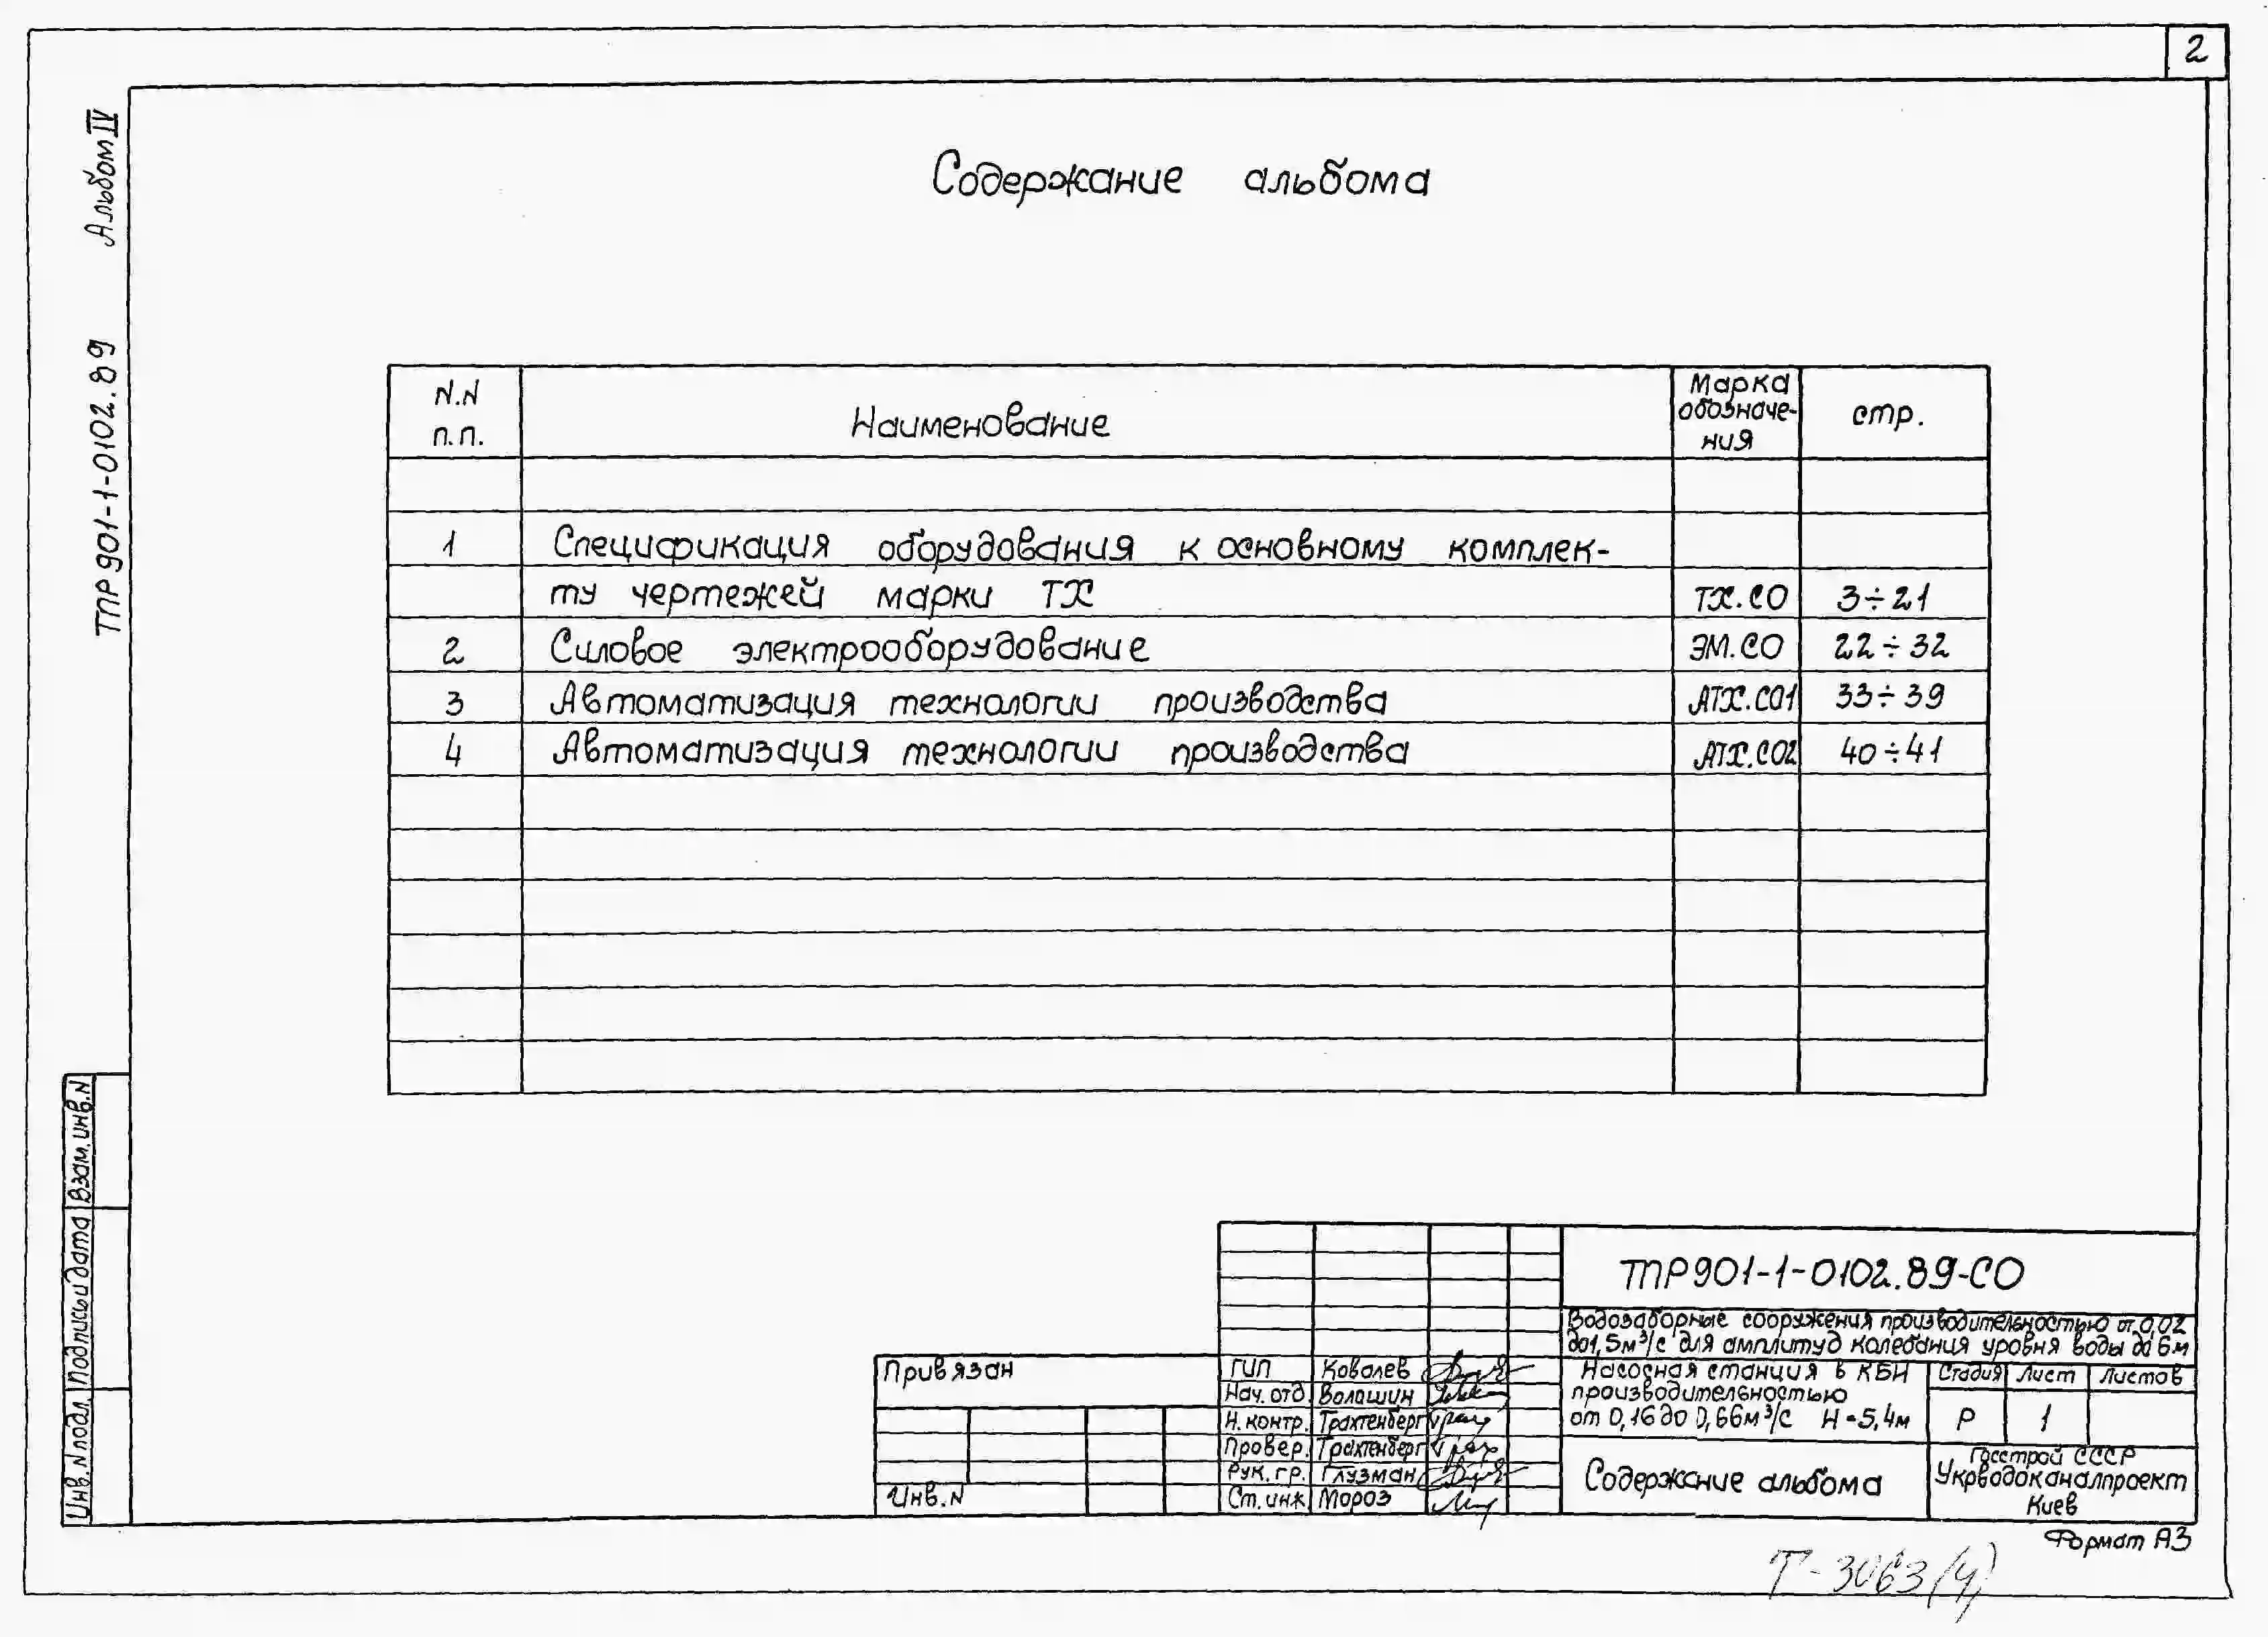 2
Альбом IV
ТПР 901-1-0102.89
Содержание альбома
N.N п.п. Наименование Марка обозначе-ния стр.
1 Спецификация оборудования к основному комплек-
ту чертежей марки ТХ ТХ.СО 3÷21
2 Силовое электрооборудование ЭМ.СО 22÷32
3 Автоматизация технологии производства АТХ.СО1 33÷39
4 Автоматизация технологии производства АТХ.СО2 40÷41
Взам.инв.N
Подпись и дата
Инв.N подл.
Привязан
Инв.N
ГИП Ковалев
Нач.отд. Волашин
Н.контр. Трахтенберг
Провер. Трахтенберг
Рук.гр. Глузман
Ст.инж. Мороз
ТПР901-1-0102.89-СО
Водозаборные сооружения производительностью от 0,02
до 1,5м³/с для амплитуд колебания уровня воды до 6м
Насосная станция в КБН
производительностью
от 0,16 до 0,66м³/с H=5,4м
Стадия Лист Листов
Р 1
Содержание альбома
Госстрой СССР
Укрводоканалпроект
Киев
Формат А3
Т-3063(4)